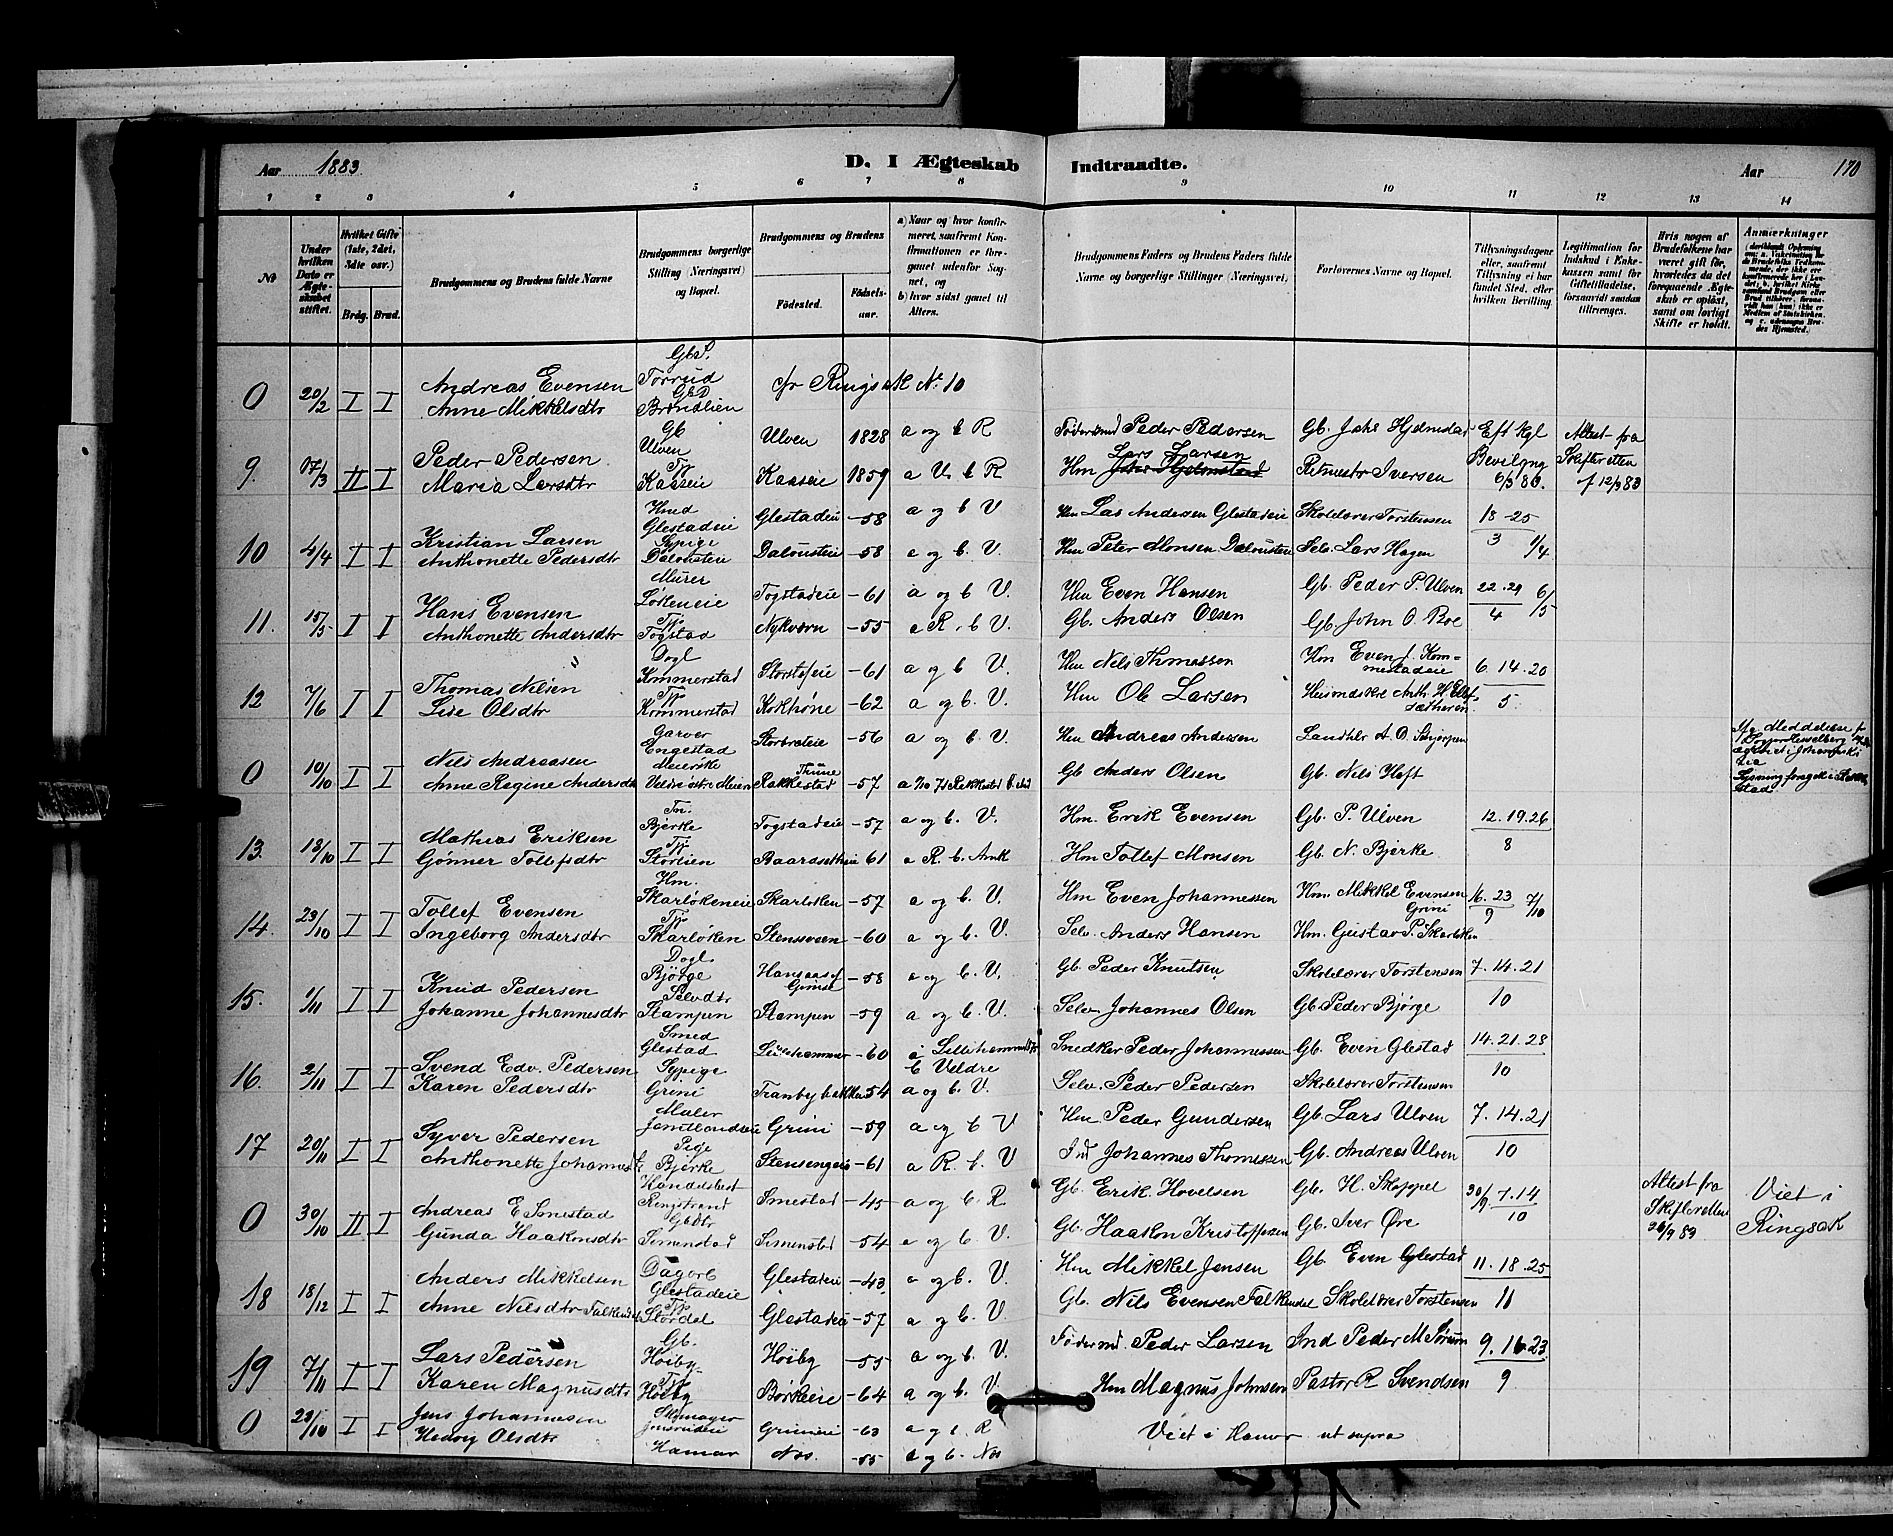 Aar 1883 D. I Ægteskab Indtraadte. Aar 170
1 2 3 4 5 6 7 8 9 10 11 12 13 14
№
Under hvilken Dato er Ægteskabet stiftet.
Hvilket Gifte (1ste, 2det, 3dte osv.)
Brdg. Brud.
Brudgommens og Brudens fulde Navne
Brudgommens borgerlige Stilling (Næringsvei) og Bopæl.
Brudgommens og Brudens
Fødested. Fødselsaar.
a) Naar og hvor konfirmeret, saafremt Konfirmationen er foregaaet udenfor Sognet, og
b) hvor sidst gaaet til Alters.
Brudgommens Faders og Brudens Faders fulde Navne og borgerlige Stillinger (Næringsvei.)
Forlovernes Navne og Bopæl.
Tillysningsdagene eller, saafremt Tillysning ei har fundet Sted, efter hvilken Bevilling.
Legitimation for Indskud i Enkekassen samt for Giftetilladelse, forsaavidt saadan tiltrænges.
Hvis nogen af Brudefolkene har været gift før, hvorledes da det foregaaende Ægteskab er opløst, samt om lovligt Skifte er holdt.
Anmærkninger
0 20/2 I I Andreas Evensen Gbs. Torrud cfr Ringsak No 10
Anne Mikkelsdtr GbD Brændlien
9. 07/3 II I Peder Pedersen Gb Ulven Ulven 1828 a og b R Føderaad Peder Pedersen Gb. Johs Hjelmstad Eft kgl Bevilgng 6/3 83. Attest fra Skifteretten af 12/3 83
Maria Larsdtr Tp Kaaseie Kaaseie 1859 a V. b R Hm Lars Larsen Retmestr Iversen
10 4/4 I I Kristian Larsen Hmd Glestadeie Glestadeie -58 a og b V Hm Lars Andersen Glestadeie Skolelærer Torstensen 18-25/3 1/4
Anthonette Pedersdtr Sypige Dalousteie Dalousteie -58 a og b. V. Hm Peter Monsen Dalousteie Selv. Lars Hagen
11. 15/5 I I Hans Evensen Murer Løkeneie Togstadeie -61 a og b V. Hm Even Hansen Gb. Peder P. Ulven 22.29/4 6/5
Anthonette Andersdtr Tp. Togstad Nykværn -55 a R. b V. Gb. Anders Olsen Gb. John O. Roe
12 7/6 I I Thomas Nilsen Dagl Kommerstad Storstofeie -61 a og b V. Hm Nils Thomassen Hm Even J. Kommestadeie 6.14.20/5
Lise Olsdtr Tp Kommerstad Kokhøne -62 a og b. V. Hm Ole Larsen
0 10/10 I I Nils Andreasen Garver Engestad Storbrøteie -56 a og b V. Hm Andreas Andersen Landhdlr A. D. Skjørpen
Anne Regine Andersdtr Meierske Rakkestad -57 Gb Anders Olsen Gb. Nils Hoft
13. 13/10 I I Mathias Eriksen Tn. Bjerke Togstadeie -57 a og b. V. Hm. Erik Evensen Gb. P. Ulven 12.19.26/8
Gønner Tollefsdtr Tp. Storlien -61 a R. b. Hm Tollef Monsen Gb. N. Bjerke
14. 23/10 I I Tollef Evensen Hm. Skarløkeneie Skarløken -57 a og b. V. Hm Even Johannessen Hm. Mikkel Evensen Grini 16.23/9 7/10
Ingeborg Andersdtr Tp. Skarløken Stenssveen -60 a og b. V. Selv. Anders Hansen Hm. Gustav P. Skarløken
15. 1/11 I I Knud Pedersen Dagl. Bjørge -58 a og b. V. Gb. Peder Knutsen Skolelærer Torstensen 7.14.21/10
Johanne Johannesdtr Selvdtr Stampen Stampen -59 a og b. V. Selv Johannes Olsen Gb Peder Bjørge
16. 2/11 I I Svend Edv. Pedersen Smed Glestad Lillehammer -60 a Lillehammer b Veldre Snedker Peder Johannessen Gb. Even Glestad 14.21.28/10
Karen Pedersdtr Sypige Grini Tranbybakken -54 a og b. V. Selv. Peder Pedersen Skolelærer Torstensen
17 20/11 I I Syver Pedersen Maler Jemtlandseie Grini -59 a og b V Hm Peder Gundersen Gb. Lars Ulven 7.14.21/10
Anthonette Johannes Pige Bjerke Stensengeie -61 a R. b. V Ind Johannes Thomassen Gb. Andreas Ulven
0 30/10 II I Andreas E Smestad Handelsbest Ringstrand Smestad -45 a og b. R Gb. Erik Hovelsen Gb. H. Skappel 30/9.7.14/10 Attest fra Skifteretten 26/9 83 Viet i Ringsak
Gunda Haakonsdtr Gbdtr Simenstad Simenstad -54 a og b V. Gb. Haakon Kristoffersen Gb. Iver Øve
18 18/12 I I Anders Mikkelsen Dagarb Glestadeie Glestadeie -43 a og b. V. Hm Mikkel Jensen Gb. Even Glestad 11.18.25/11
Anne Nilsdtr Falkendal Tp. Stordal Glestadeie -57 a og b. V. Gb. Nils Evensen Falkendal Skolelærer Torstensen
19 7/11 I I Lars Pedersen Gb. Høiby Høiby -55 a og b. V. Føderaad Peder Larsen Ind Peder M Sørum 9.16.23/9
Karen Magnusdtr Tp Høiby Børkeeie -64 a og b. V Hm Magnus Johnsen Pastor R Svendsen
0 23/10 I I Jens Johannesen Skomager Grinieie -63 a og b R Viet i Hamar ut supra
Hedvig Olsdtr Hamar Næs. -55 a og b. Næs